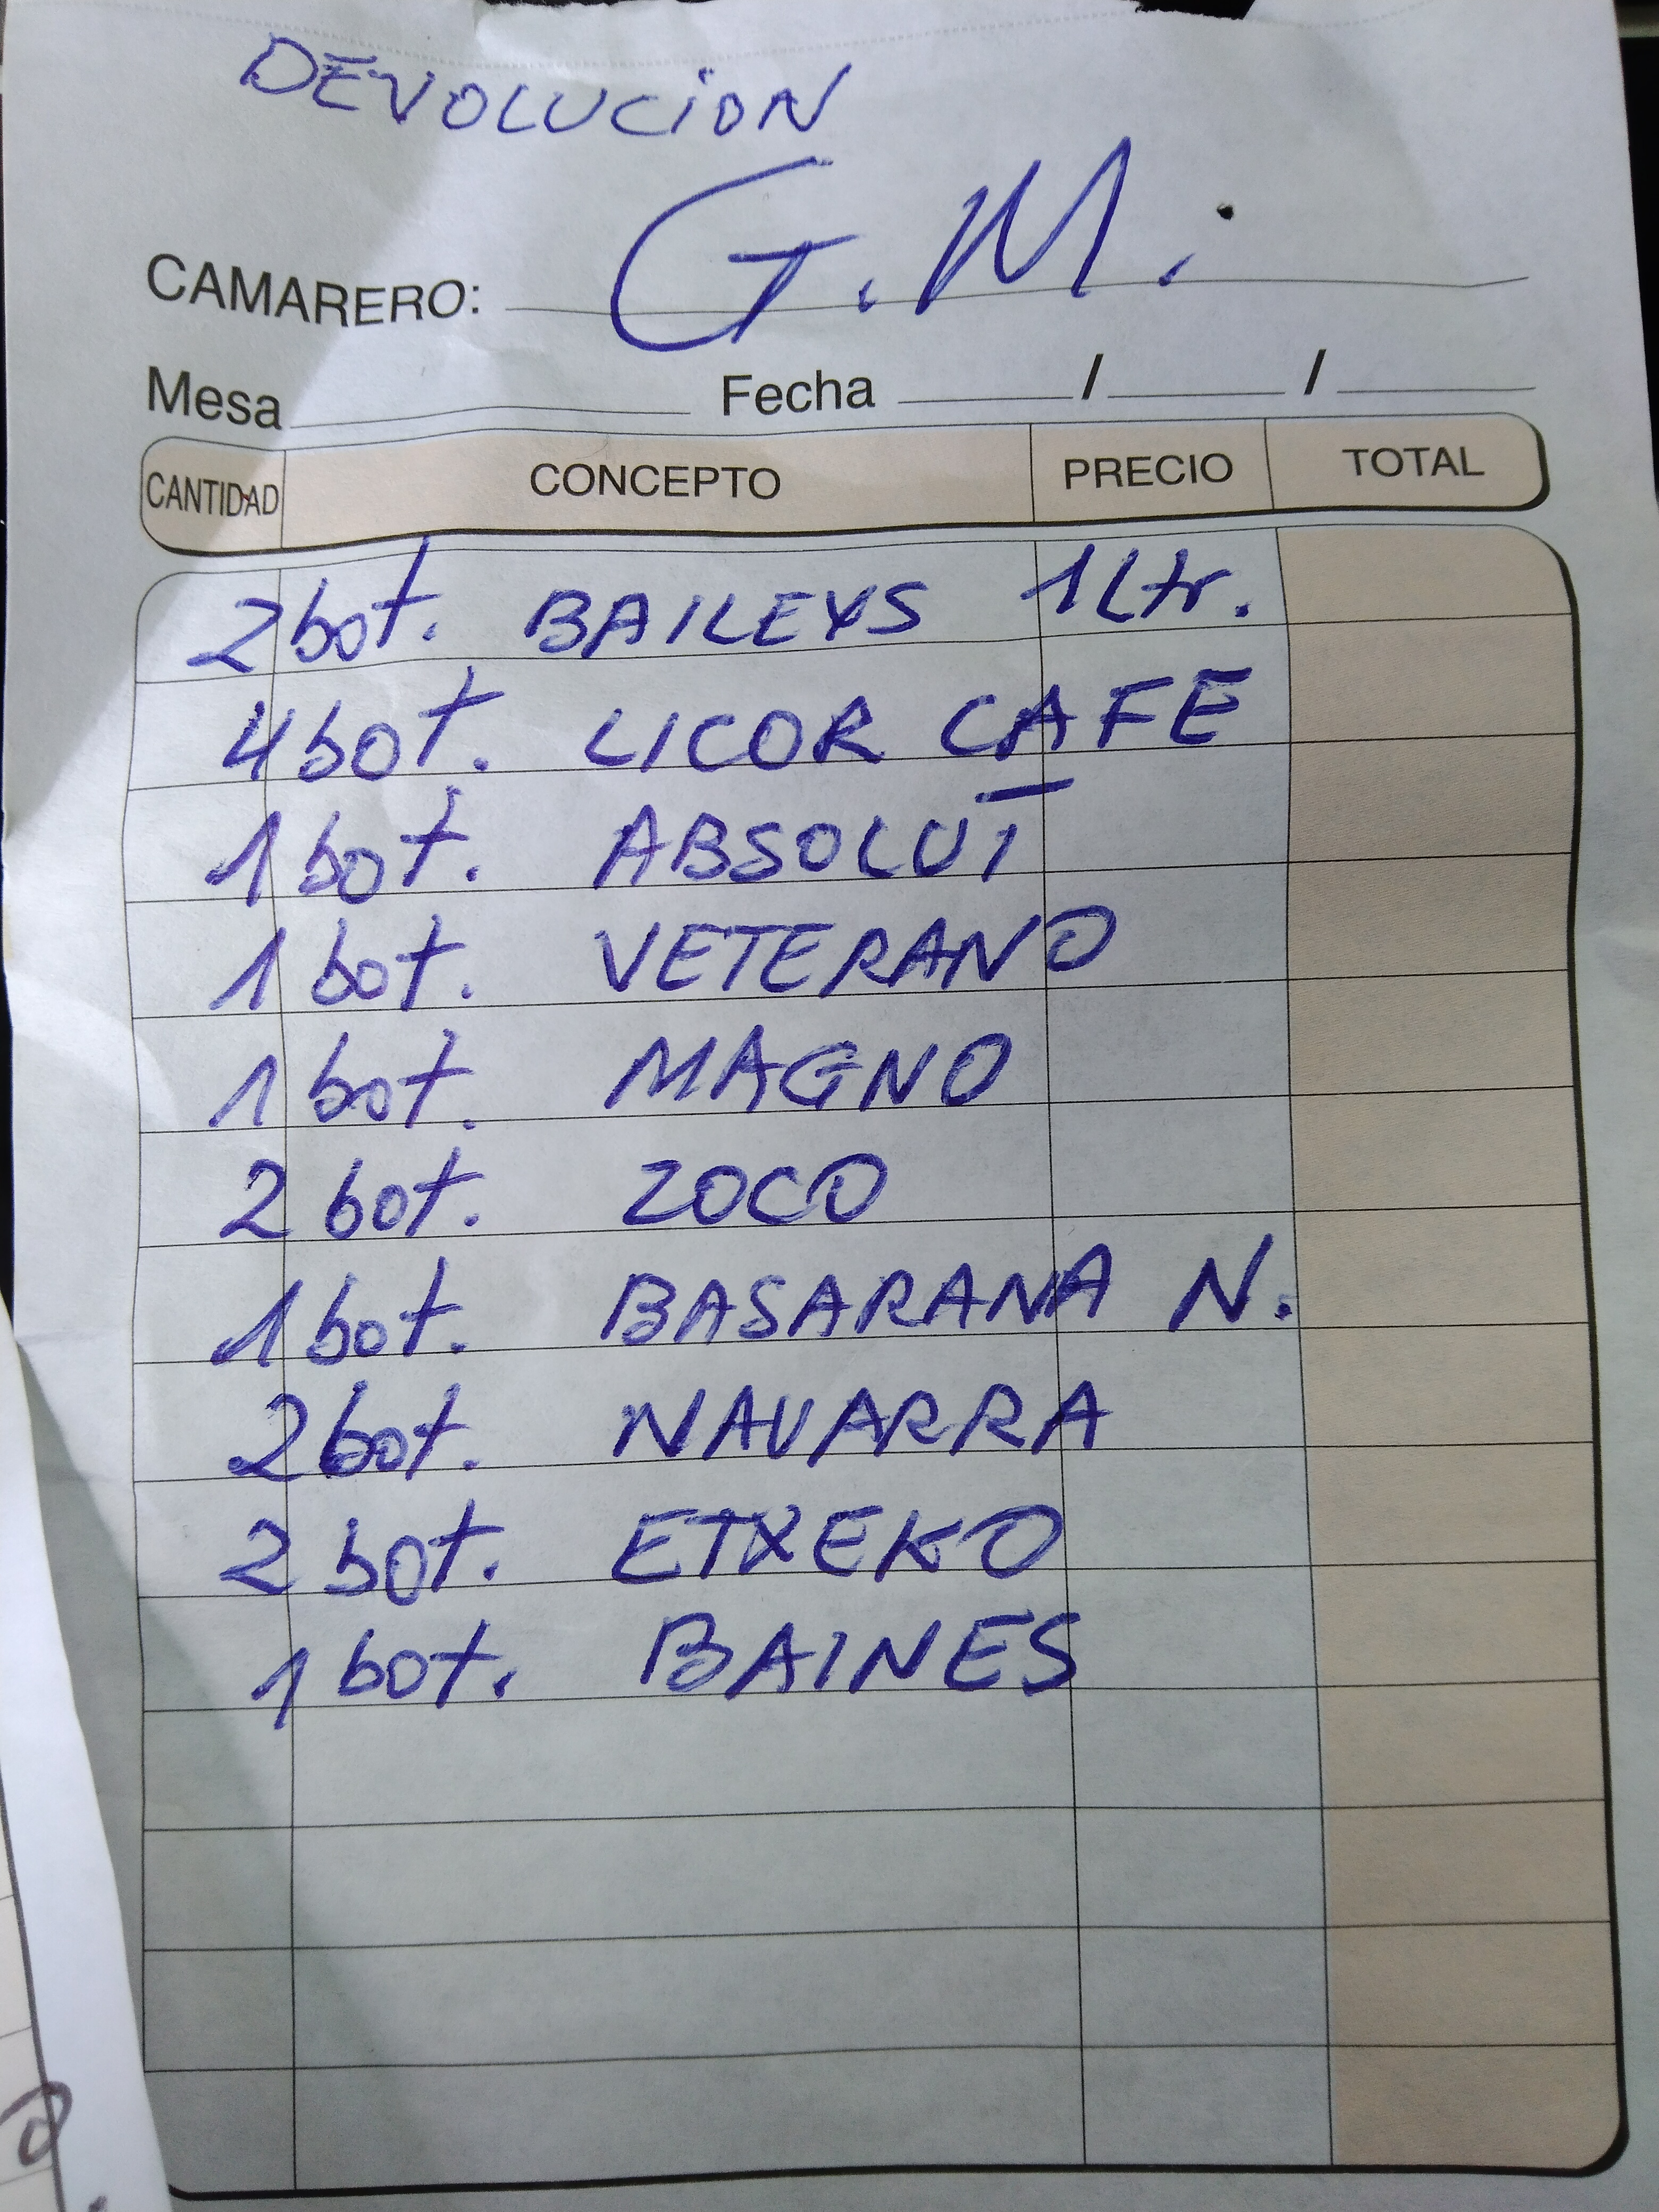 DEVOLUCION
CAMARERO: G.M.
Mesa Fecha / /
CANTIDAD CONCEPTO PRECIO TOTAL
2 bot. BAILEYS 1 Ltr.
4 bot. LICOR CAFE
1 bot. ABSOLUT
1 bot. VETERANO
1 bot. MAGNO
2 bot. ZOCO
1 bot. BASARANA N.
2 bot. NAVARRA
2 bot. ETXEKO
1 bot. BAINES